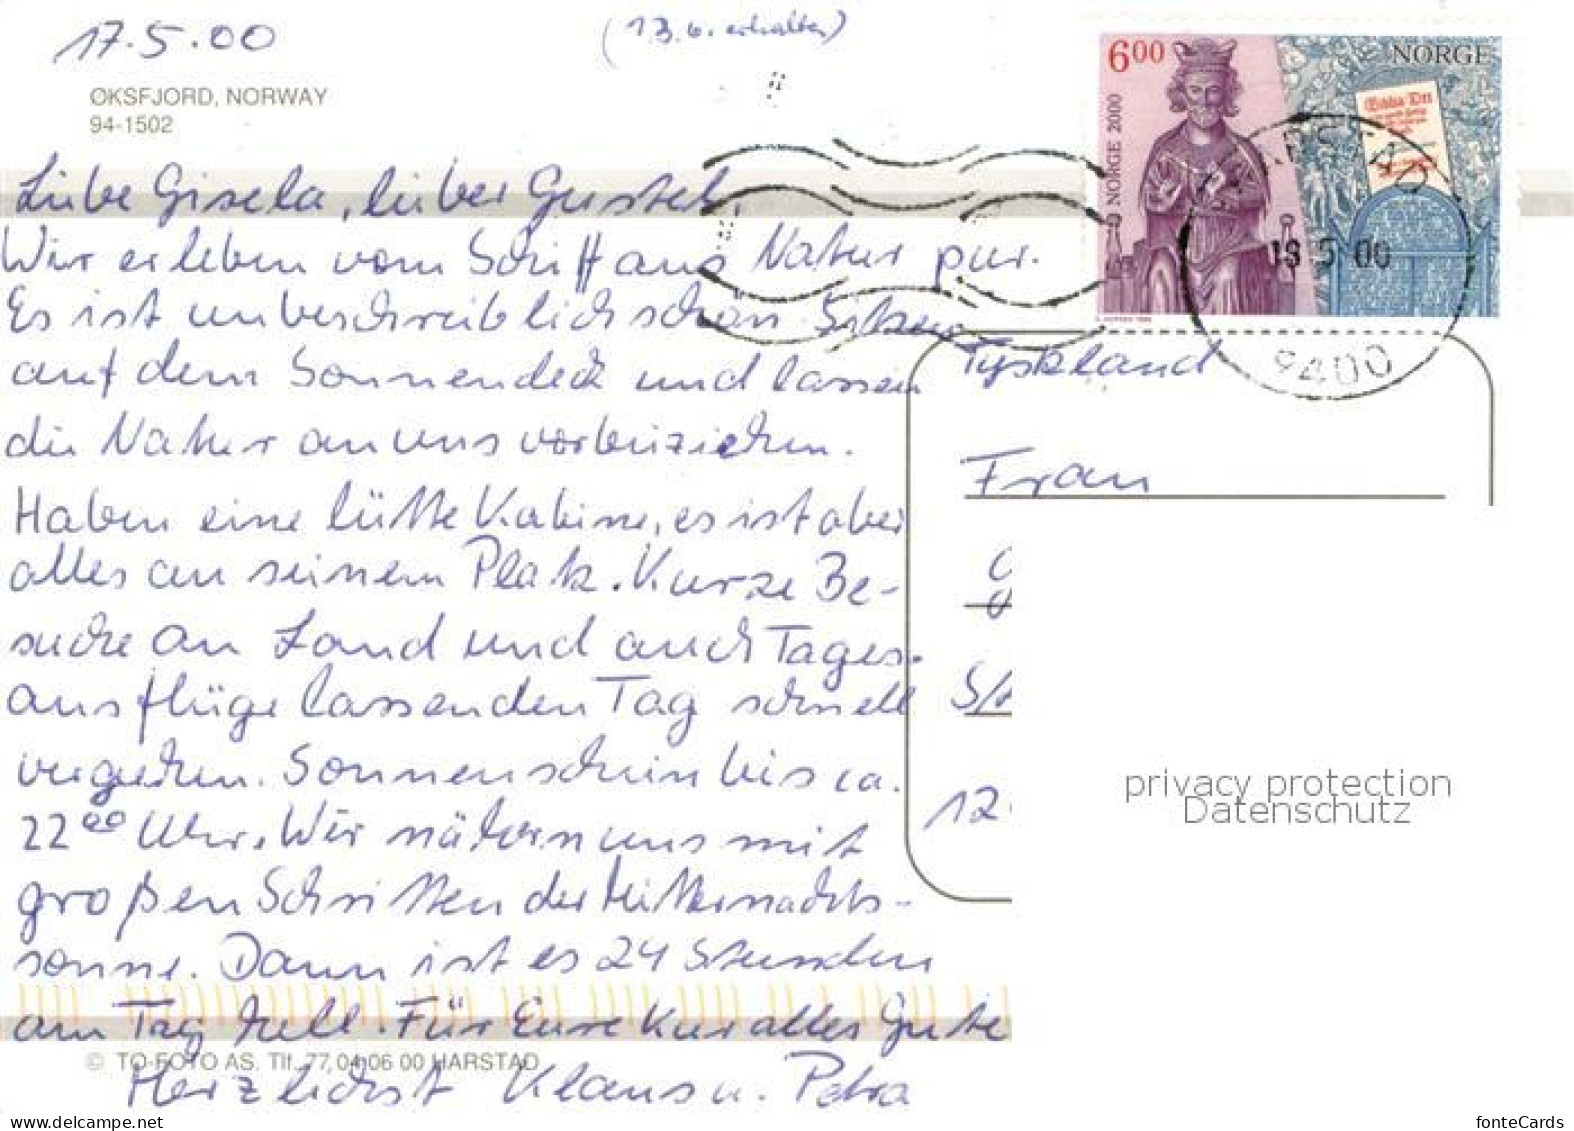 17.5.00
(13.6. erhalten)
ØKSFJORD, NORWAY
94-1502
600
NORGE
NORGE 2000
Biblia Det
HARSTAD
18 5 00
9400
Liebe Gisela, lieber Gustel
Wir erleben vom Schiff aus Natur pur.
Es ist unbeschreiblich schön. Sitzen
auf dem Sonnendeck und lassen
die Natur an uns vorbeiziehen.
Haben eine lütte Kabine, es ist aber
alles an seinem Platz. Kurze Be-
suche an Land und auch Tages-
ausflüge lassen den Tag schnell
vergehen. Sonnenschein bis ca.
22°° Uhr. Wir nähern uns mit
großen Schritten der Mitternachts-
sonne. Dann ist es 24 Stunden
am Tag hell. Für Eure Kur alles Gute
© TO-FOTO AS. Tlf. 77 04 06 00 HARSTAD
Herzlichst Klaus u. Petra
Tyskland
Frau
S/A
12
privacy protection
Datenschutz
www.delcampe.net
fonteCards